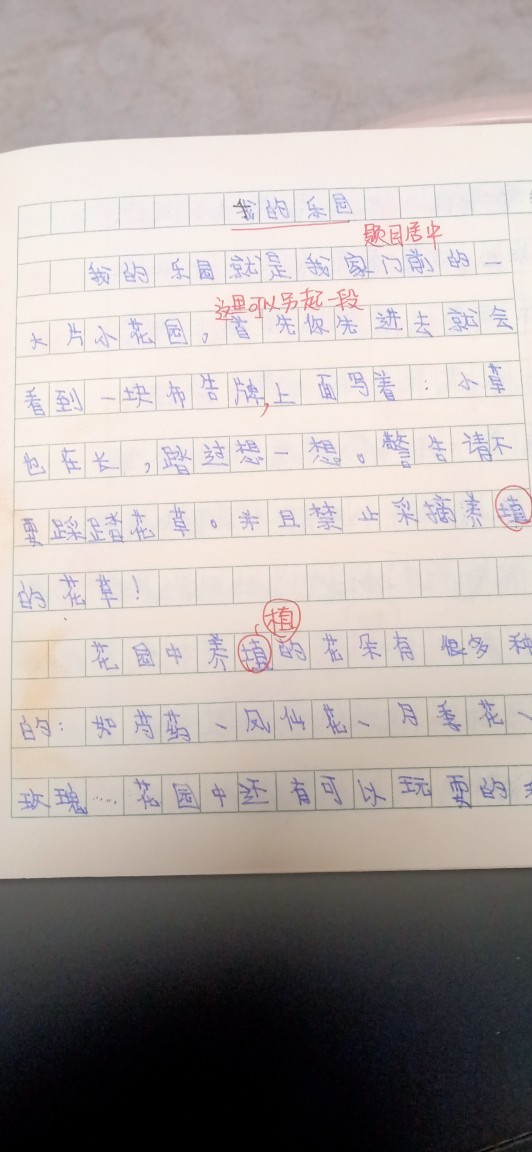 我的乐园
题目居中
我的乐园就是我家门前的一
这里可以另起一段
大片小花园，首先你先进去就会
看到一块布告牌,上面写着：小草
也在长，踏这想一想。警告请不
要踩踏花草。并且禁止采摘养填
的花草！
植
花园中养填的花朵有很多种
的：如芍药、凤仙花、月季花、
玫瑰……花园中还有可以玩耍的